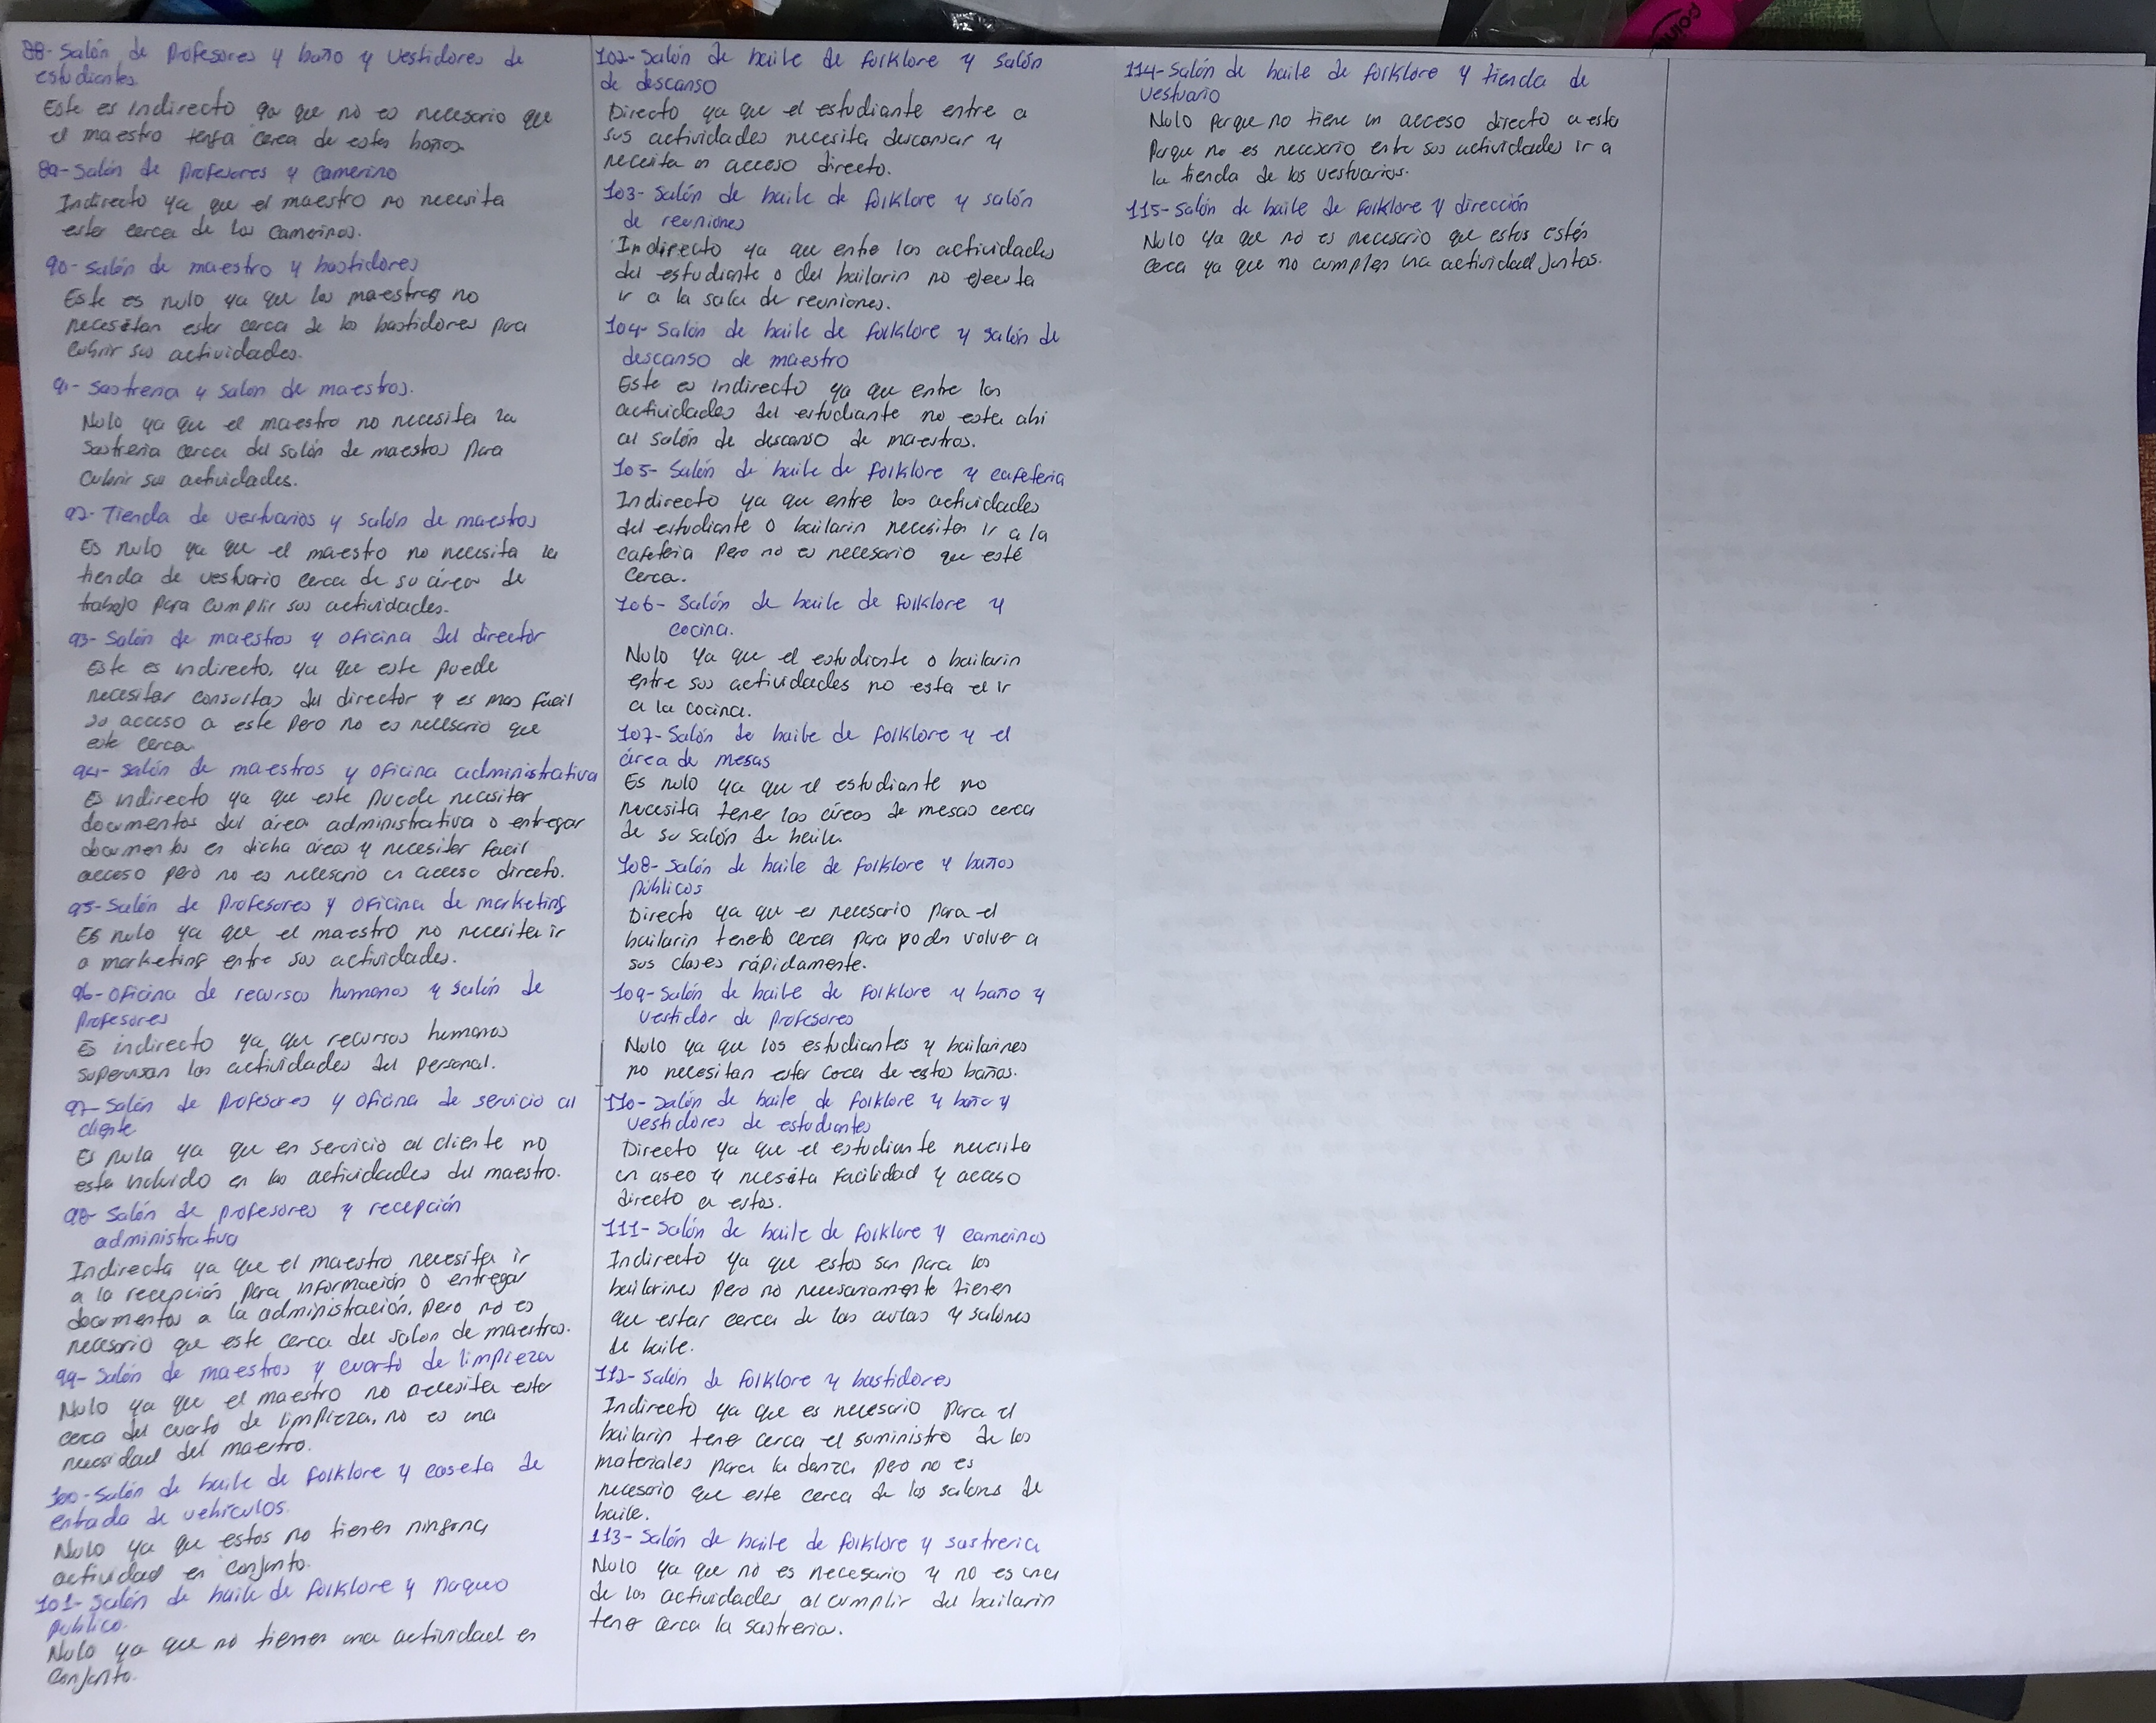 88- Salón de Profesores y baño y vestidores de
estudiantes
Este es indirecto ya que no es necesario que
el maestro tenga cerca de estos baños.
89- Salón de Profesores y Camerino
Indirecto ya que el maestro no necesita
estar cerca de los camerinos.
90- Salón de maestro y bastidores
Este es nulo ya que los maestros no
necesitan estar cerca de los bastidores para
cubrir sus actividades.
91- Sastreria y Salon de maestros.
Nulo ya que el maestro no necesita la
Sastreria cerca del salón de maestros para
Cubrir sus actividades.
92- Tienda de vestuarios y salón de maestros
Es nulo ya que el maestro no necesita la
tienda de vestuario cerca de su área de
trabajo para cumplir sus actividades.
93- Salón de maestros y oficina del director
Este es indirecto, ya que este puede
necesitar consultas del director y es mas facil
su acceso a este pero no es necesario que
este cerca.
94- Salón de maestros y oficina administrativa
Es indirecto ya que este puede necesitar
documentos del área administrativa o entregar
documentos en dicha área y necesitar facil
acceso pero no es necesario un acceso directo.
95- Salón de Profesores y oficina de marketing
Es nulo ya que el maestro no necesita ir
a marketing entre sus actividades.
96- Oficina de recursos humanos y salón de
Profesores
Es indirecto ya que recursos humanos
supervisan las actividades del personal.
97- Salón de Profesores y oficina de servicio al
cliente
Es nula ya que en servicio al cliente no
esta incluido en las actividades del maestro.
98- Salón de profesores y recepción
administrativa
Indirecta ya que el maestro necesita ir
a la recepción para información o entregar
documentos a la administración, pero no es
necesario que este cerca del salon de maestros.
99- Salón de maestros y cuarto de limpieza
Nulo ya que el maestro no necesita estar
cerca del cuarto de limpieza, no es una
necesidad del maestro.
100- Salón de baile de folklore y caseta de
entrada de vehículos.
Nulo ya que estos no tienen ninguna
actividad en conjunto.
101- Salón de baile de folklore y Parqueo
público.
Nulo ya que no tienen una actividad en
conjunto.
102- Salón de baile de folklore y salón
de descanso
Directo ya que el estudiante entre a
sus actividades necesita descansar y
necesita un acceso directo.
103- Salón de baile de folklore y salón
de reuniones
Indirecto ya que entre las actividades
del estudiante o del bailarin no ejecuta
ir a la sala de reuniones.
104- Salón de baile de folklore y salón de
descanso de maestro
Este es indirecto ya que entre las
actividades del estudiante no esta ahi
al salón de descanso de maestros.
105- Salón de baile de folklore y cafeteria
Indirecto ya que entre las actividades
del estudiante o bailarin necesitan ir a la
cafeteria pero no es necesario que esté
cerca.
106- Salón de baile de folklore y
cocina.
Nulo ya que el estudiante o bailarin
entre sus actividades no esta el ir
a la cocina.
107- Salón de baile de folklore y el
área de mesas
Es nulo ya que el estudiante no
necesita tener las áreas de mesas cerca
de su salón de baile.
108- Salón de baile de folklore y baños
públicos
Directo ya que es necesario para el
bailarin tenerlo cerca para poder volver a
sus clases rápidamente.
109- Salón de baile de folklore y baño y
vestidor de Profesores
Nulo ya que los estudiantes y bailarines
no necesitan estar cerca de estos baños.
110- Salón de baile de folklore y baño y
vestidores de estudiantes
Directo ya que el estudiante necesita
un aseo y necesita facilidad y acceso
directo a estos.
111- Salón de baile de folklore y camerinos
Indirecto ya que estos son para los
bailarines pero no necesariamente tienen
que estar cerca de las aulas y salones
de baile.
112- Salón de folklore y bastidores
Indirecto ya que es necesario para el
bailarin tener cerca el suministro de los
materiales para la danza pero no es
necesario que este cerca de los salones de
baile.
113- Salón de baile de folklore y sastreria
Nulo ya que no es necesario y no es una
de las actividades al cumplir del bailarin
tener cerca la sastreria.
114- Salón de baile de folklore y tienda de
vestuario
Nulo porque no tiene un acceso directo a esta
Porque no es necesario entre sus actividades ir a
la tienda de los vestuarios.
115- Salón de baile de folklore y dirección
Nulo ya que no es necesario que estos estén
cerca ya que no cumplen una actividad juntos.